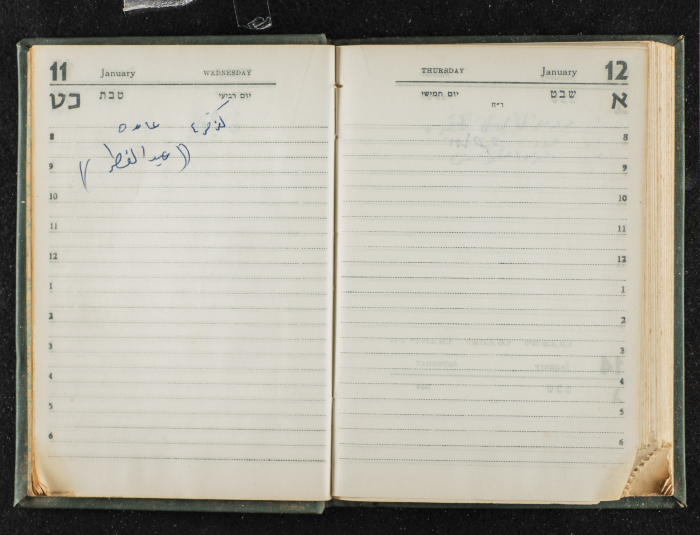 11 January WEDNESDAY
כט טבת יום רביעי
عادة
((عيد الفطر))
8
9
10
11
12
1
2
3
4
5
6
THURSDAY January 12
יום חמישי שבט א
ר״ח
8
9
10
11
12
1
2
3
4
5
6